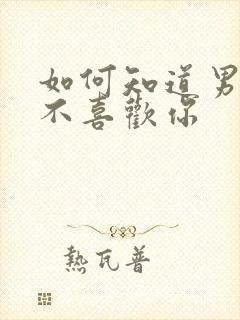 如何知道男
不喜歡你
熱瓦普